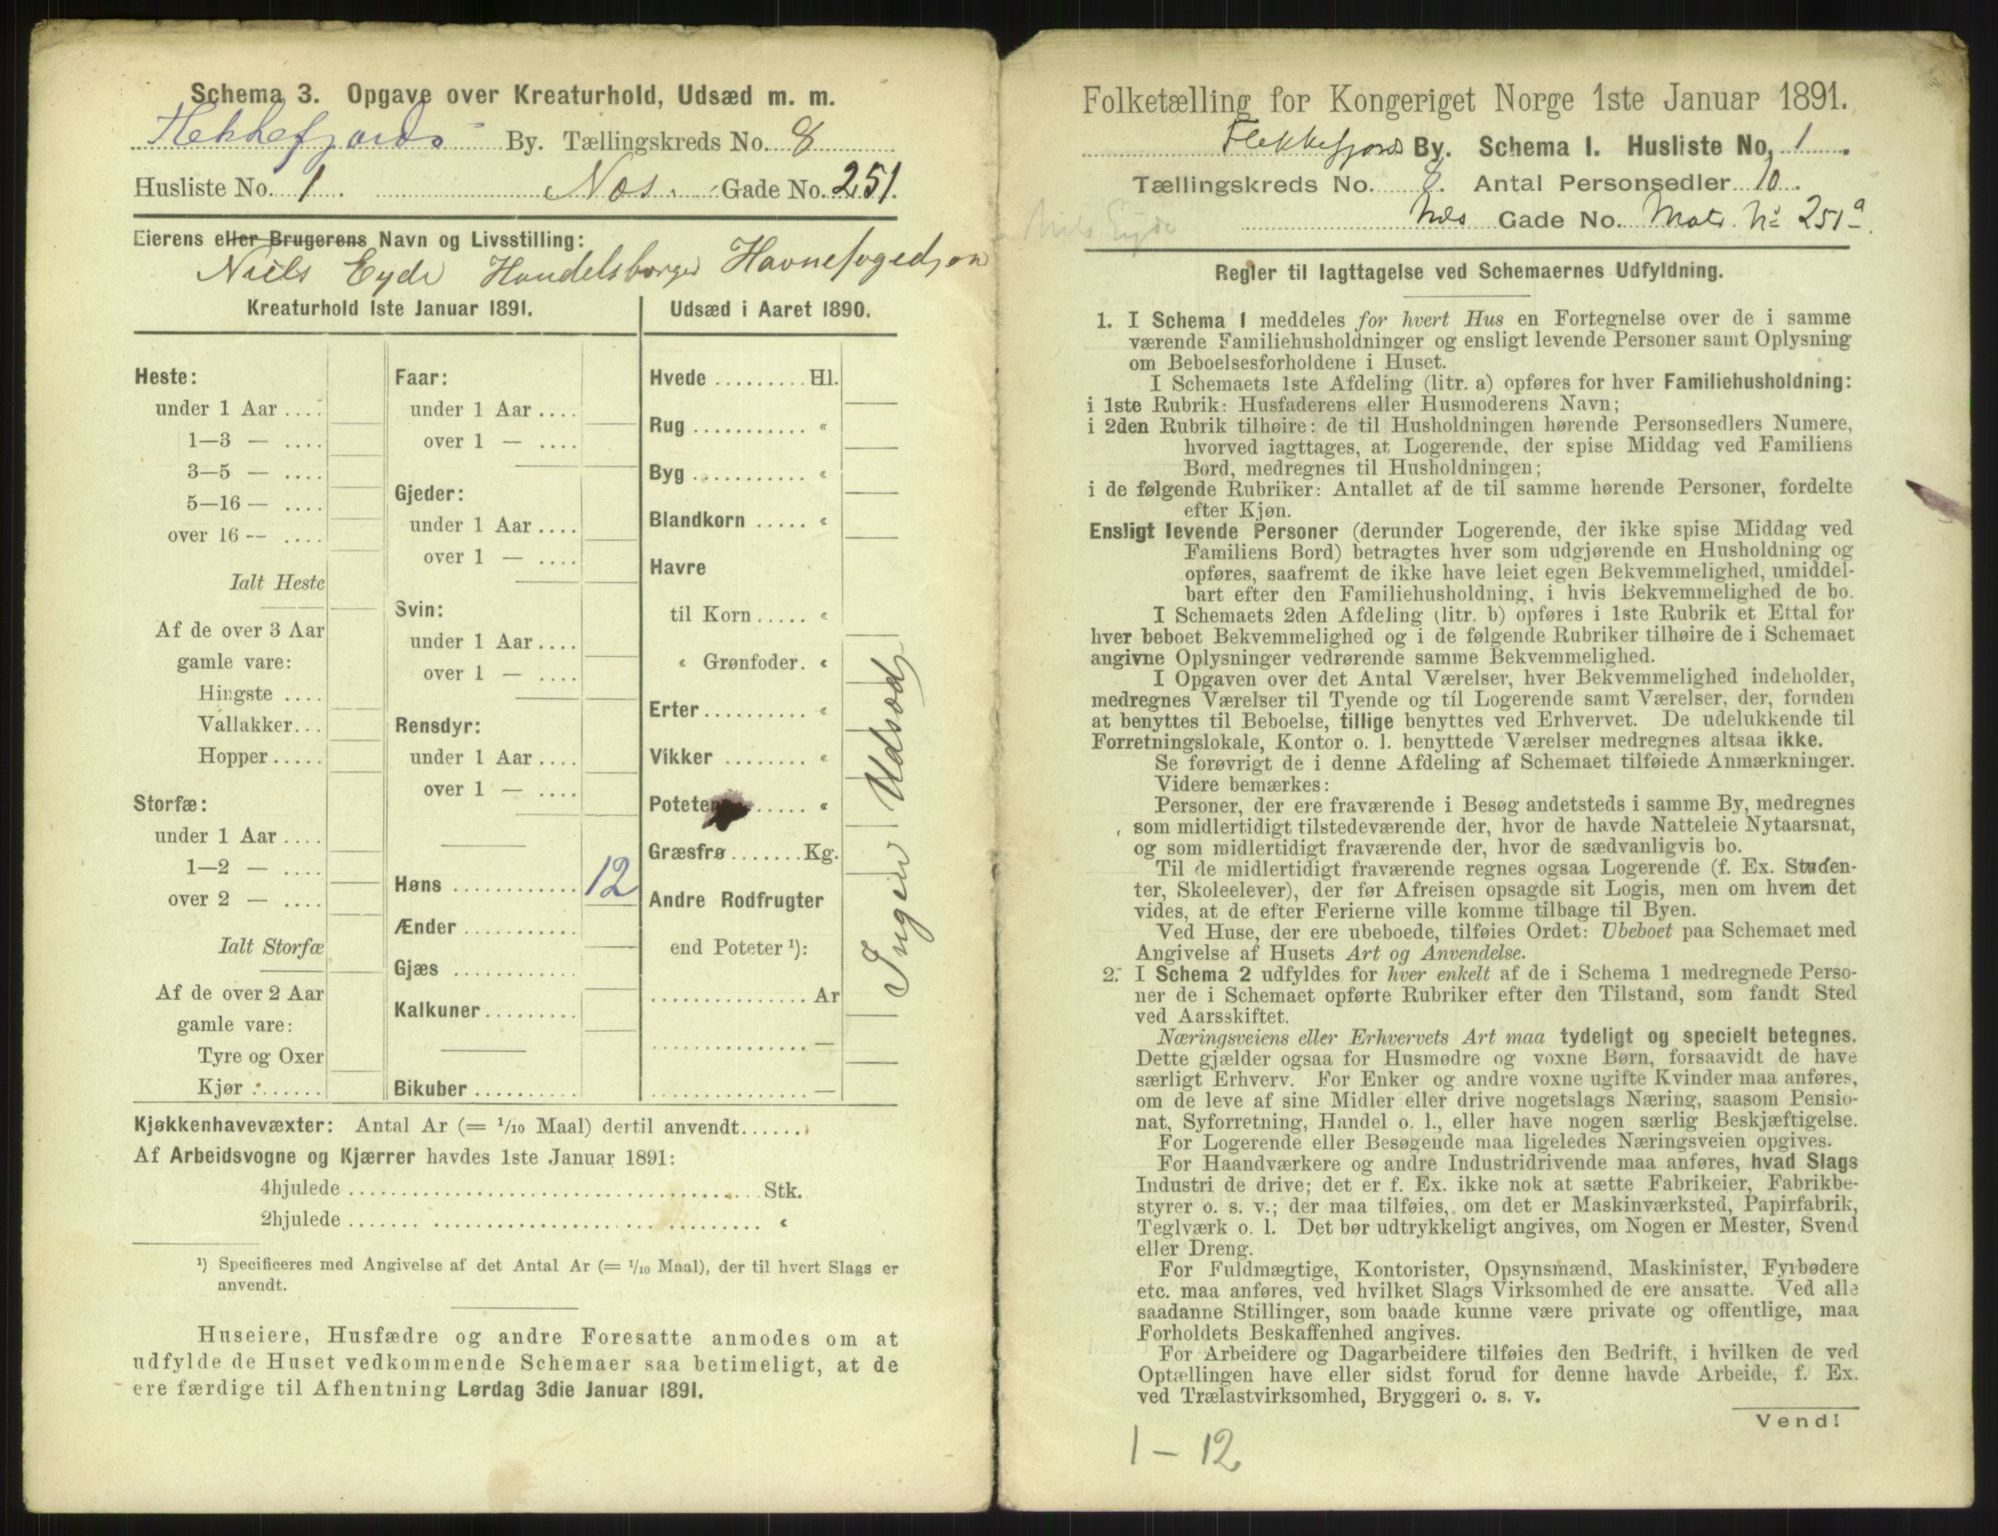 Schema 3. Opgave over Kreaturhold, Udsæd m. m.
Flekkefjords By. Tællingskreds No. 8
Husliste No. 1. Næs. Gade No. 251.
Eierens eller Brugerens Navn og Livsstilling:
Niels Eyde Handelsborger Havnefoged
Kreaturhold 1ste Januar 1891.
Heste:
under 1 Aar ....
1—3 — ....
3—5 — ....
5—16 — ....
over 16 — ....
Ialt Heste
Af de over 3 Aar
gamle vare:
Hingste ....
Vallakker...
Hopper.....
Storfæ:
under 1 Aar....
1—2 — ....
over 2 — ....
Ialt Storfæ
Af de over 2 Aar
gamle vare:
Tyre og Oxer
Kjør .......
Faar:
under 1 Aar ....
over 1 — ....
Gjeder:
under 1 Aar ....
over 1 — ....
Svin:
under 1 Aar ....
over 1 — ....
Rensdyr:
under 1 Aar ....
over 1 — ....
Høns ............ 12
Ænder ...........
Gjæs ............
Kalkuner.........
Bikuber ..........
Udsæd i Aaret 1890.
Hvede ......... Hl.
Rug ........... «
Byg ........... «
Blandkorn ..... «
Havre
til Korn ..... «
« Grønfoder. «
Erter.......... «
Vikker ........ «
Poteter ....... «
Græsfrø ....... Kg.
Andre Rodfrugter
end Poteter ¹):
............... Ar
............... —
............... —
Ingen Udsæd
Kjøkkenhavevæxter: Antal Ar (= 1/10 Maal) dertil anvendt......
Af Arbeidsvogne og Kjærrer havdes 1ste Januar 1891:
4hjulede ........................................ Stk.
2hjulede ........................................ «
¹) Specificeres med Angivelse af det Antal Ar (= 1/10 Maal), der til hvert Slags er
anvendt.
Huseiere, Husfædre og andre Foresatte anmodes om at
udfylde de Huset vedkommende Schemaer saa betimeligt, at de
ere færdige til Afhentning Lørdag 3die Januar 1891.
Folketælling for Kongeriget Norge 1ste Januar 1891.
Flekkefjords By. Schema 1. Husliste No. 1.
Tællingskreds No. 8. Antal Personsedler 10.
Nils Eyde
Næs Gade No. Matr. No 251a.
Regler til Iagttagelse ved Schemaernes Udfyldning.
1. I Schema 1 meddeles for hvert Hus en Fortegnelse over de i samme
værende Familiehusholdninger og ensligt levende Personer samt Oplysning
om Beboelsesforholdene i Huset.
I Schemaets 1ste Afdeling (litr. a) opføres for hver Familiehusholdning:
i 1ste Rubrik: Husfaderens eller Husmoderens Navn;
i 2den Rubrik tilhøire: de til Husholdningen hørende Personsedlers Numere,
hvorved iagttages, at Logerende, der spise Middag ved Familiens
Bord, medregnes til Husholdningen;
i de følgende Rubriker: Antallet af de til samme hørende Personer, fordelte
efter Kjøn.
Ensligt levende Personer (derunder Logerende, der ikke spise Middag ved
Familiens Bord) betragtes hver som udgjørende en Husholdning og
opføres, saafremt de ikke have leiet egen Bekvemmelighed, umiddel-
bart efter den Familiehusholdning, i hvis Bekvemmelighed de bo.
I Schemaets 2den Afdeling (litr. b) opføres i 1ste Rubrik et Ettal for
hver beboet Bekvemmelighed og i de følgende Rubriker tilhøire de i Schemaet
angivne Oplysninger vedrørende samme Bekvemmelighed.
I Opgaven over det Antal Værelser, hver Bekvemmelighed indeholder,
medregnes Værelser til Tyende og til Logerende samt Værelser, der, foruden
at benyttes til Beboelse, tillige benyttes ved Erhvervet. De udelukkende til
Forretningslokale, Kontor o. l. benyttede Værelser medregnes altsaa ikke.
Se forøvrigt de i denne Afdeling af Schemaet tilføiede Anmærkninger.
Videre bemærkes:
Personer, der ere fraværende i Besøg andetsteds i samme By, medregnes
som midlertidigt tilstedeværende der, hvor de havde Natteleie Nytaarsnat,
og som midlertidigt fraværende der, hvor de sædvanligvis bo.
Til de midlertidigt fraværende regnes ogsaa Logerende (f. Ex. Studen-
ter, Skoleelever), der før Afreisen opsagde sit Logis, men om hvem det
vides, at de efter Ferierne ville komme tilbage til Byen.
Ved Huse, der ere ubeboede, tilføies Ordet: Ubeboet paa Schemaet med
Angivelse af Husets Art og Anvendelse.
2. I Schema 2 udfyldes for hver enkelt af de i Schema 1 medregnede Perso-
ner de i Schemaet opførte Rubriker efter den Tilstand, som fandt Sted
ved Aarsskiftet.
Næringsveiens eller Erhvervets Art maa tydeligt og specielt betegnes.
Dette gjælder ogsaa for Husmødre og voxne Børn, forsaavidt de have
særligt Erhverv. For Enker og andre voxne ugifte Kvinder maa anføres,
om de leve af sine Midler eller drive nogetslags Næring, saasom Pensio-
nat, Syforretning, Handel o. l., eller have nogen særlig Beskjæftigelse.
For Logerende eller Besøgende maa ligeledes Næringsveien opgives.
For Haandværkere og andre Industridrivende maa anføres, hvad Slags
Industri de drive; det er f. Ex. ikke nok at sætte Fabrikeier, Fabrikbe-
styrer o. s. v.; der maa tilføies, om det er Maskinværksted, Papirfabrik,
Teglværk o. l. Det bør udtrykkeligt angives, om Nogen er Mester, Svend
eller Dreng.
For Fuldmægtige, Kontorister, Opsynsmænd, Maskinister, Fyrbødere
etc. maa anføres, ved hvilket Slags Virksomhed de ere ansatte. Ved alle
saadanne Stillinger, som baade kunne være private og offentlige, maa
Forholdets Beskaffenhed angives.
For Arbeidere og Dagarbeidere tilføies den Bedrift, i hvilken de ved
Optællingen have eller sidst forud for denne havde Arbeide, f. Ex.
ved Trælastvirksomhed, Bryggeri o. s. v.
Vend!
1 — 12